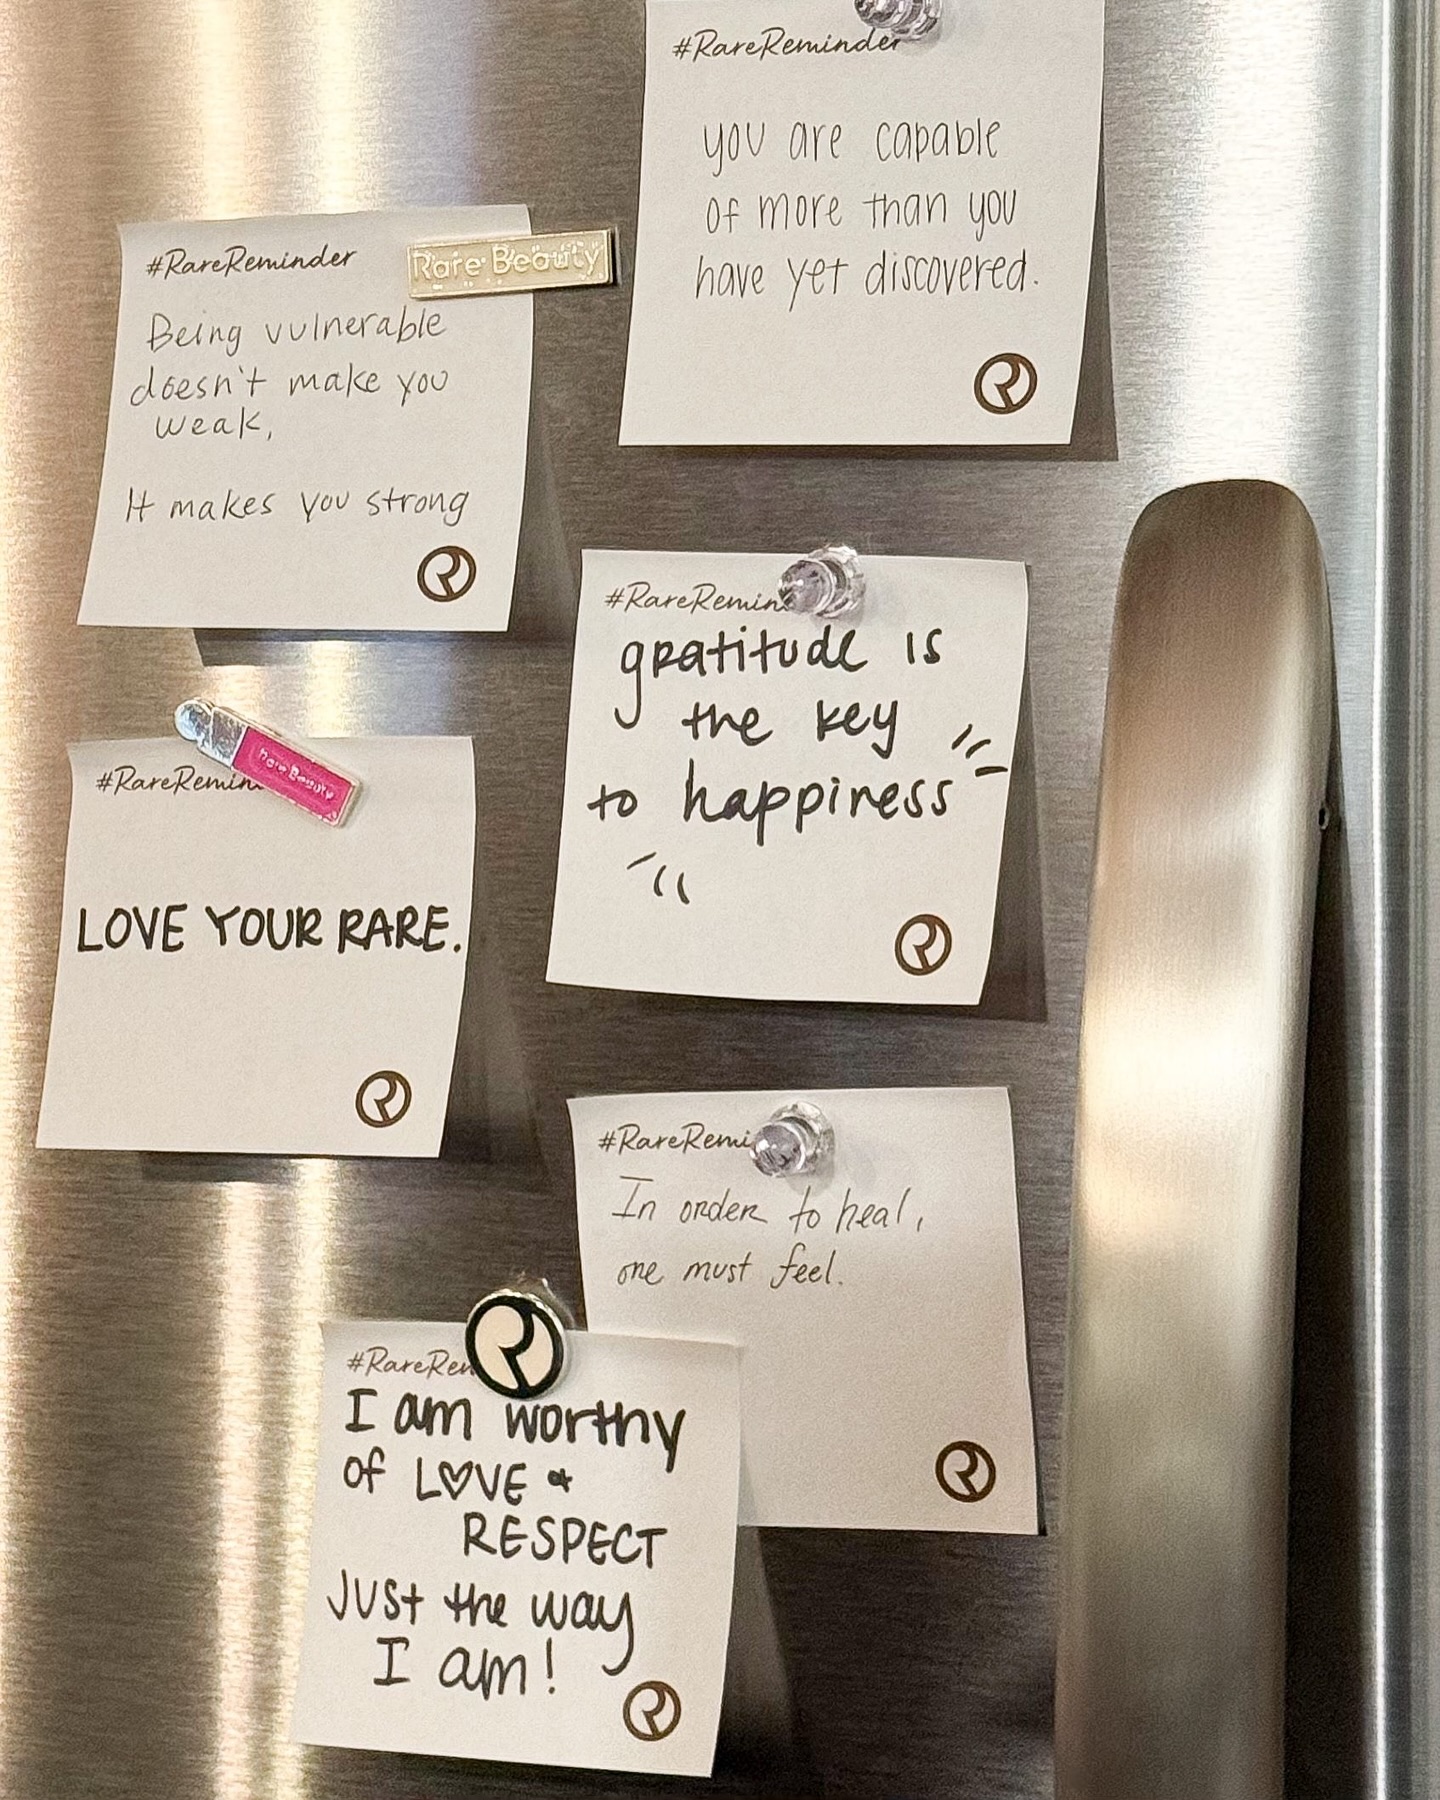 #RareReminder
you are capable
of more than you
have yet discovered.
#RareReminder
Rare Beauty
Being vulnerable
doesn't make you
weak,
It makes you strong
#RareRemin
gratitude is
the key
to happiness
#RareRemin
Rare Beauty
LOVE YOUR RARE.
#RareRemi
In order to heal,
one must feel.
#RareRem
I am worthy
of LOVE &
RESPECT
Just the way
I am!